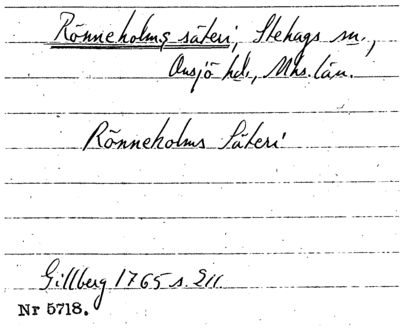 Rönneholms säteri, Stehags sn.,
Onsjö hd., Mhs. län.
Rönneholms Säteri
Gillberg 1765 s. 211
Nr 5718.